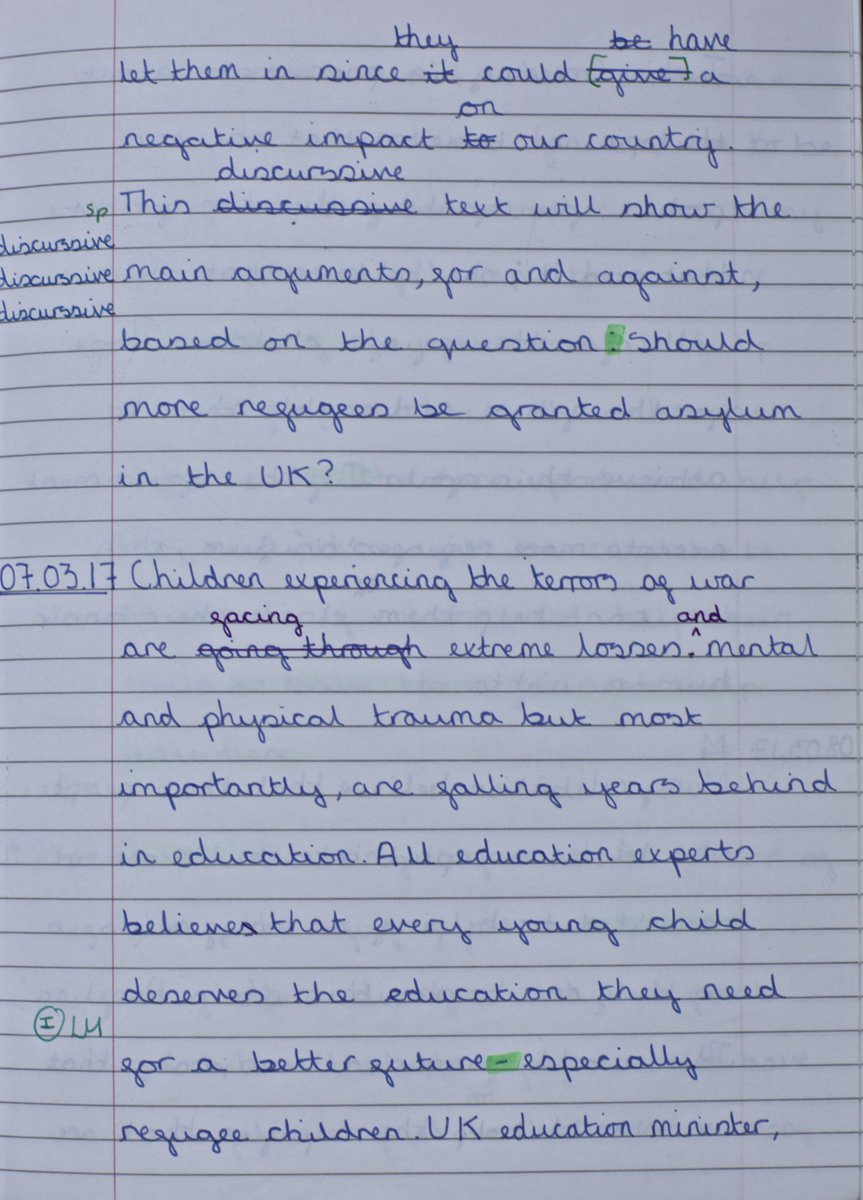 they be have
let them in since it could [give] a
on
negative impact to our country.
discurssive
sp This discussive text will show the
discursive
discursive main arguments, for and against,
discursive
based on the question : Should
more refugees be granted asylum
in the UK?
07.03.17 Children experiencing the terrors of war
facing and
are going through extreme losses. ^ mental
and physical trauma but most
importantly, are falling years behind
in education. All education experts
believes that every young child
deserves the education they need
I LM
for a better future - especially
refugee children. UK education minister,